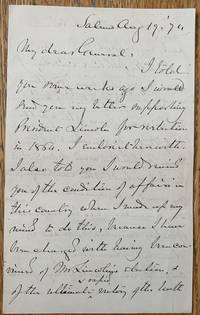 Salem Aug 19. 74
My dear General.
I told
you some weeks ago I would
send you my letter supporting
President Lincoln for reelection
in 1864. I enclose it herewith.
I also told you I would remind
you of the condition of affairs in
this country when I made up my
mind to do this, because I have
been charged with having been con-
vinced of Mr Lincoln's election, &
of the ultimate rapid victory of the North